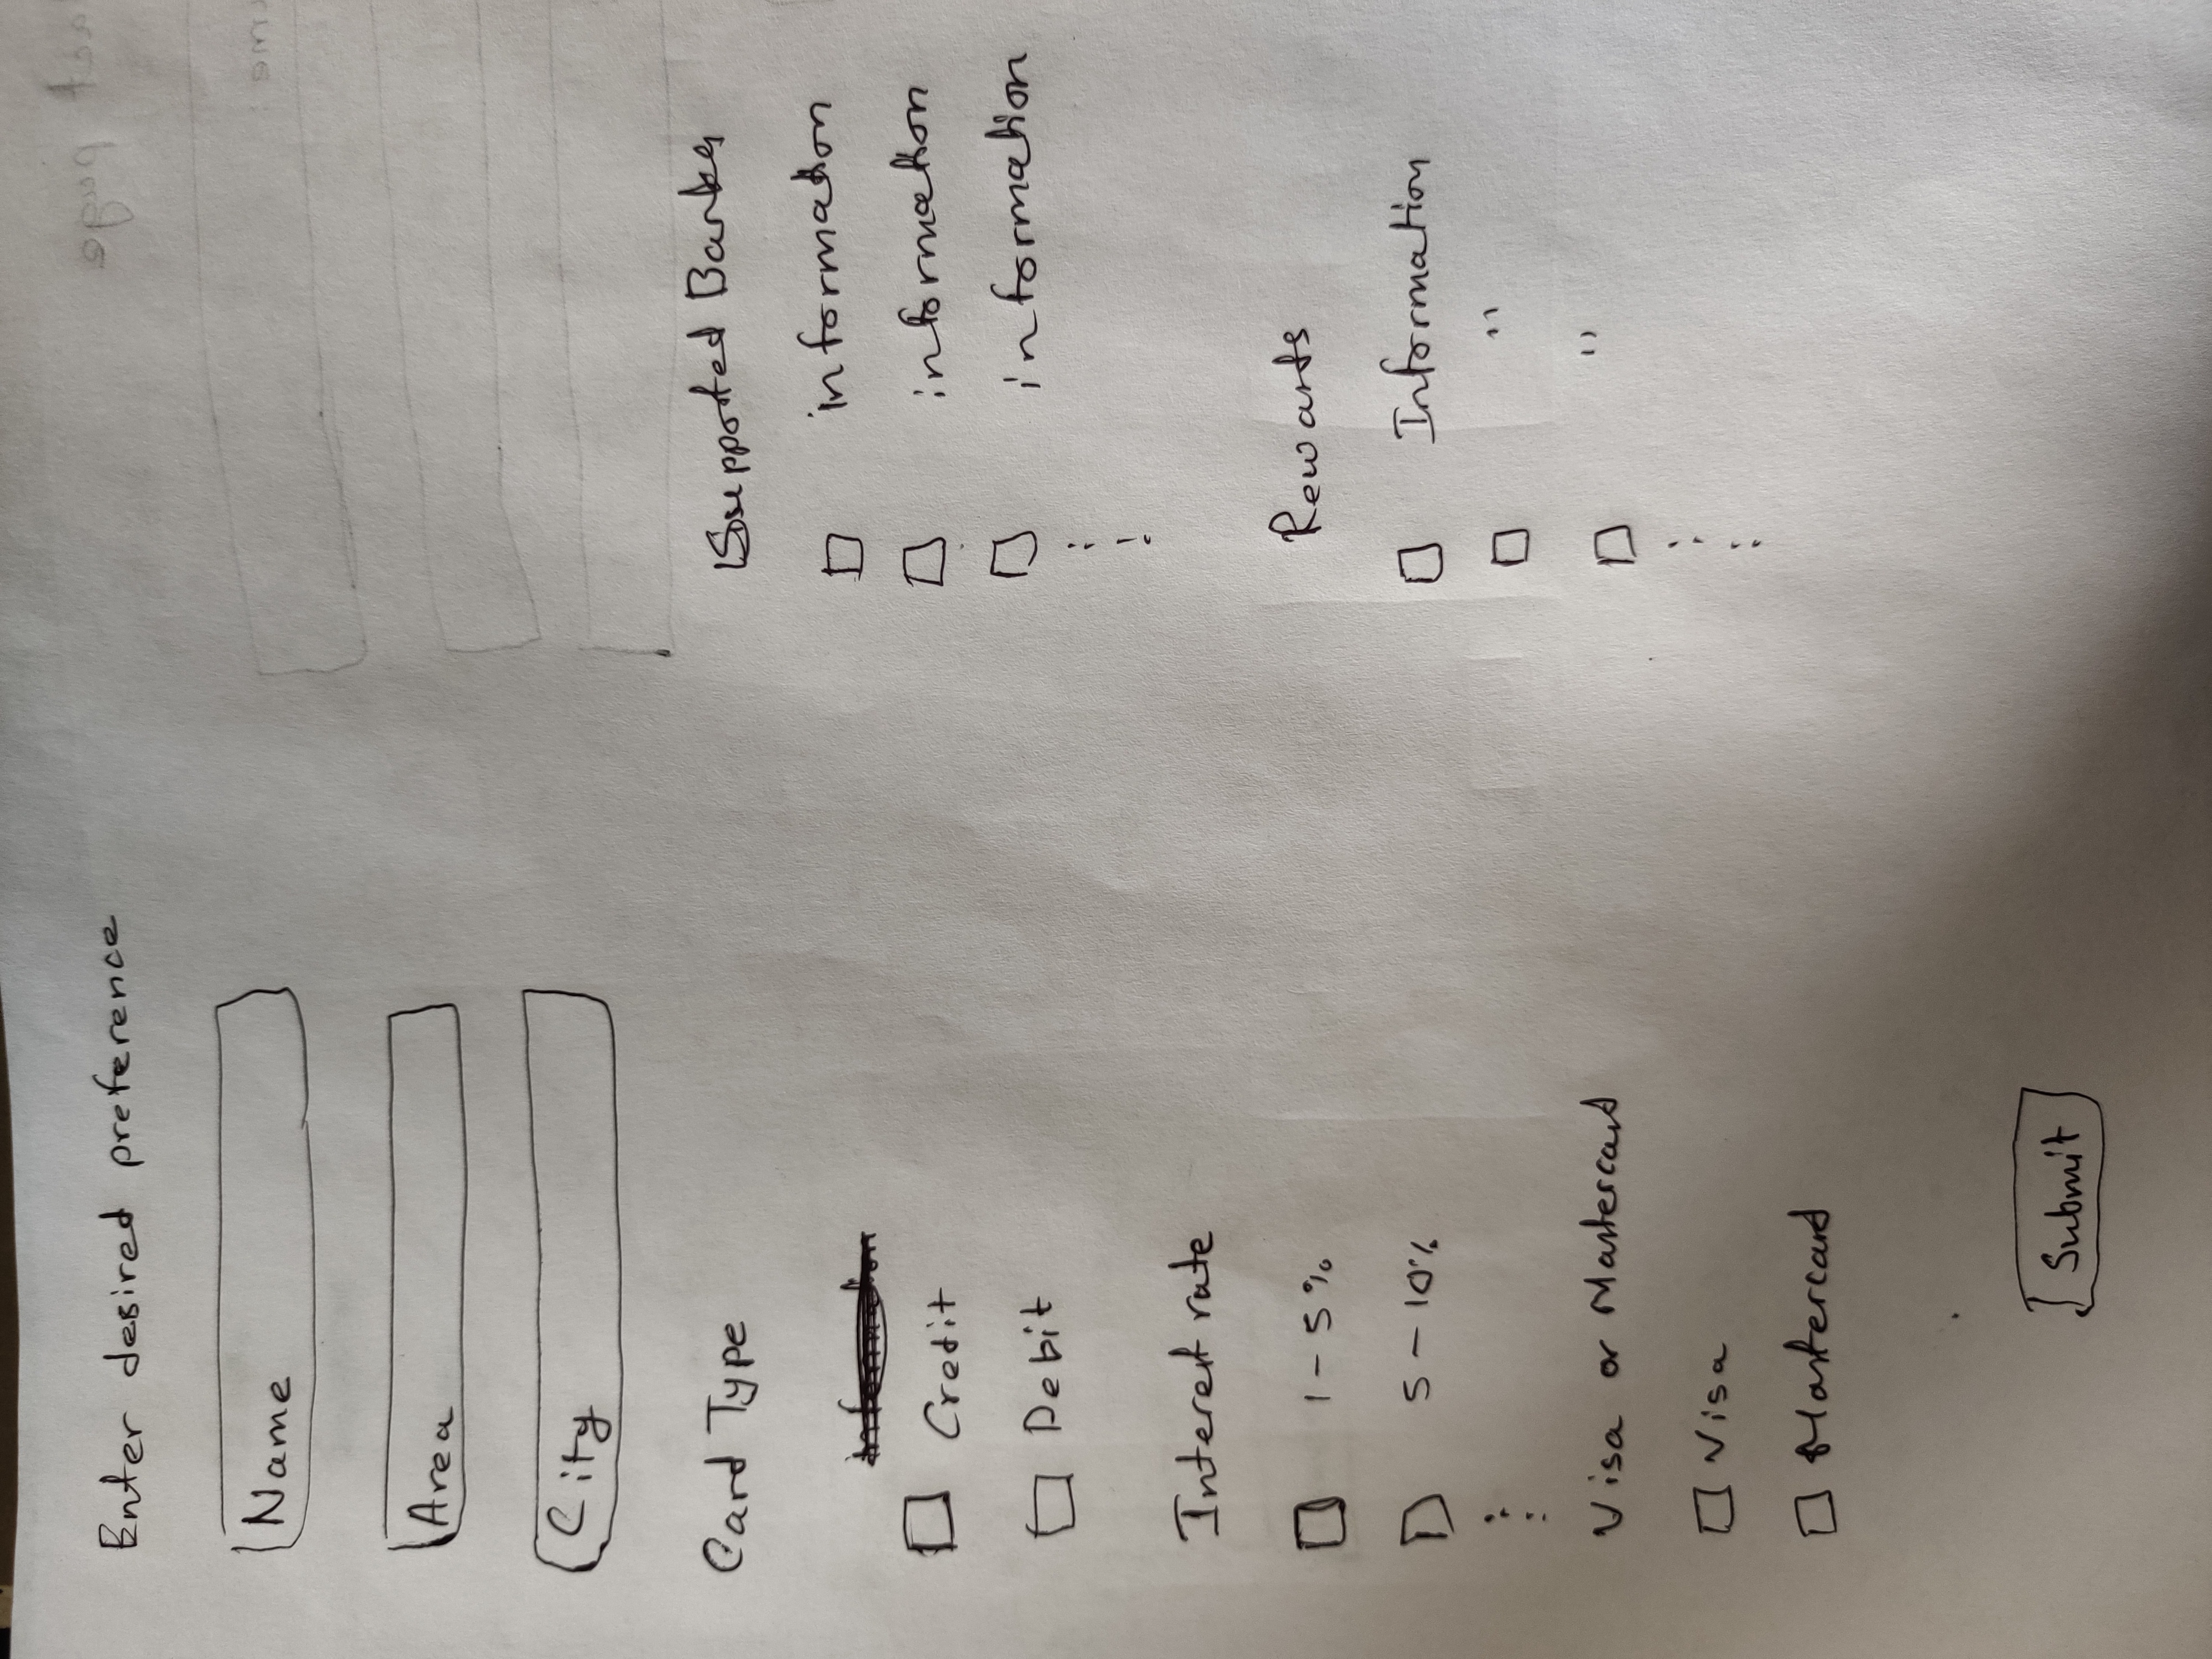 Enter desired preference
Name
Area
City
Card Type
Credit
Debit
Interest rate
1 - 5%
5 - 10%
Visa or Mastercard
Visa
Mastercard
Supported Banks
information
information
information
Rewards
Information
"
"
Submit